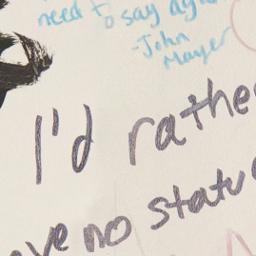 need to say again
-John
Mayer
I'd rathe
ve no statu